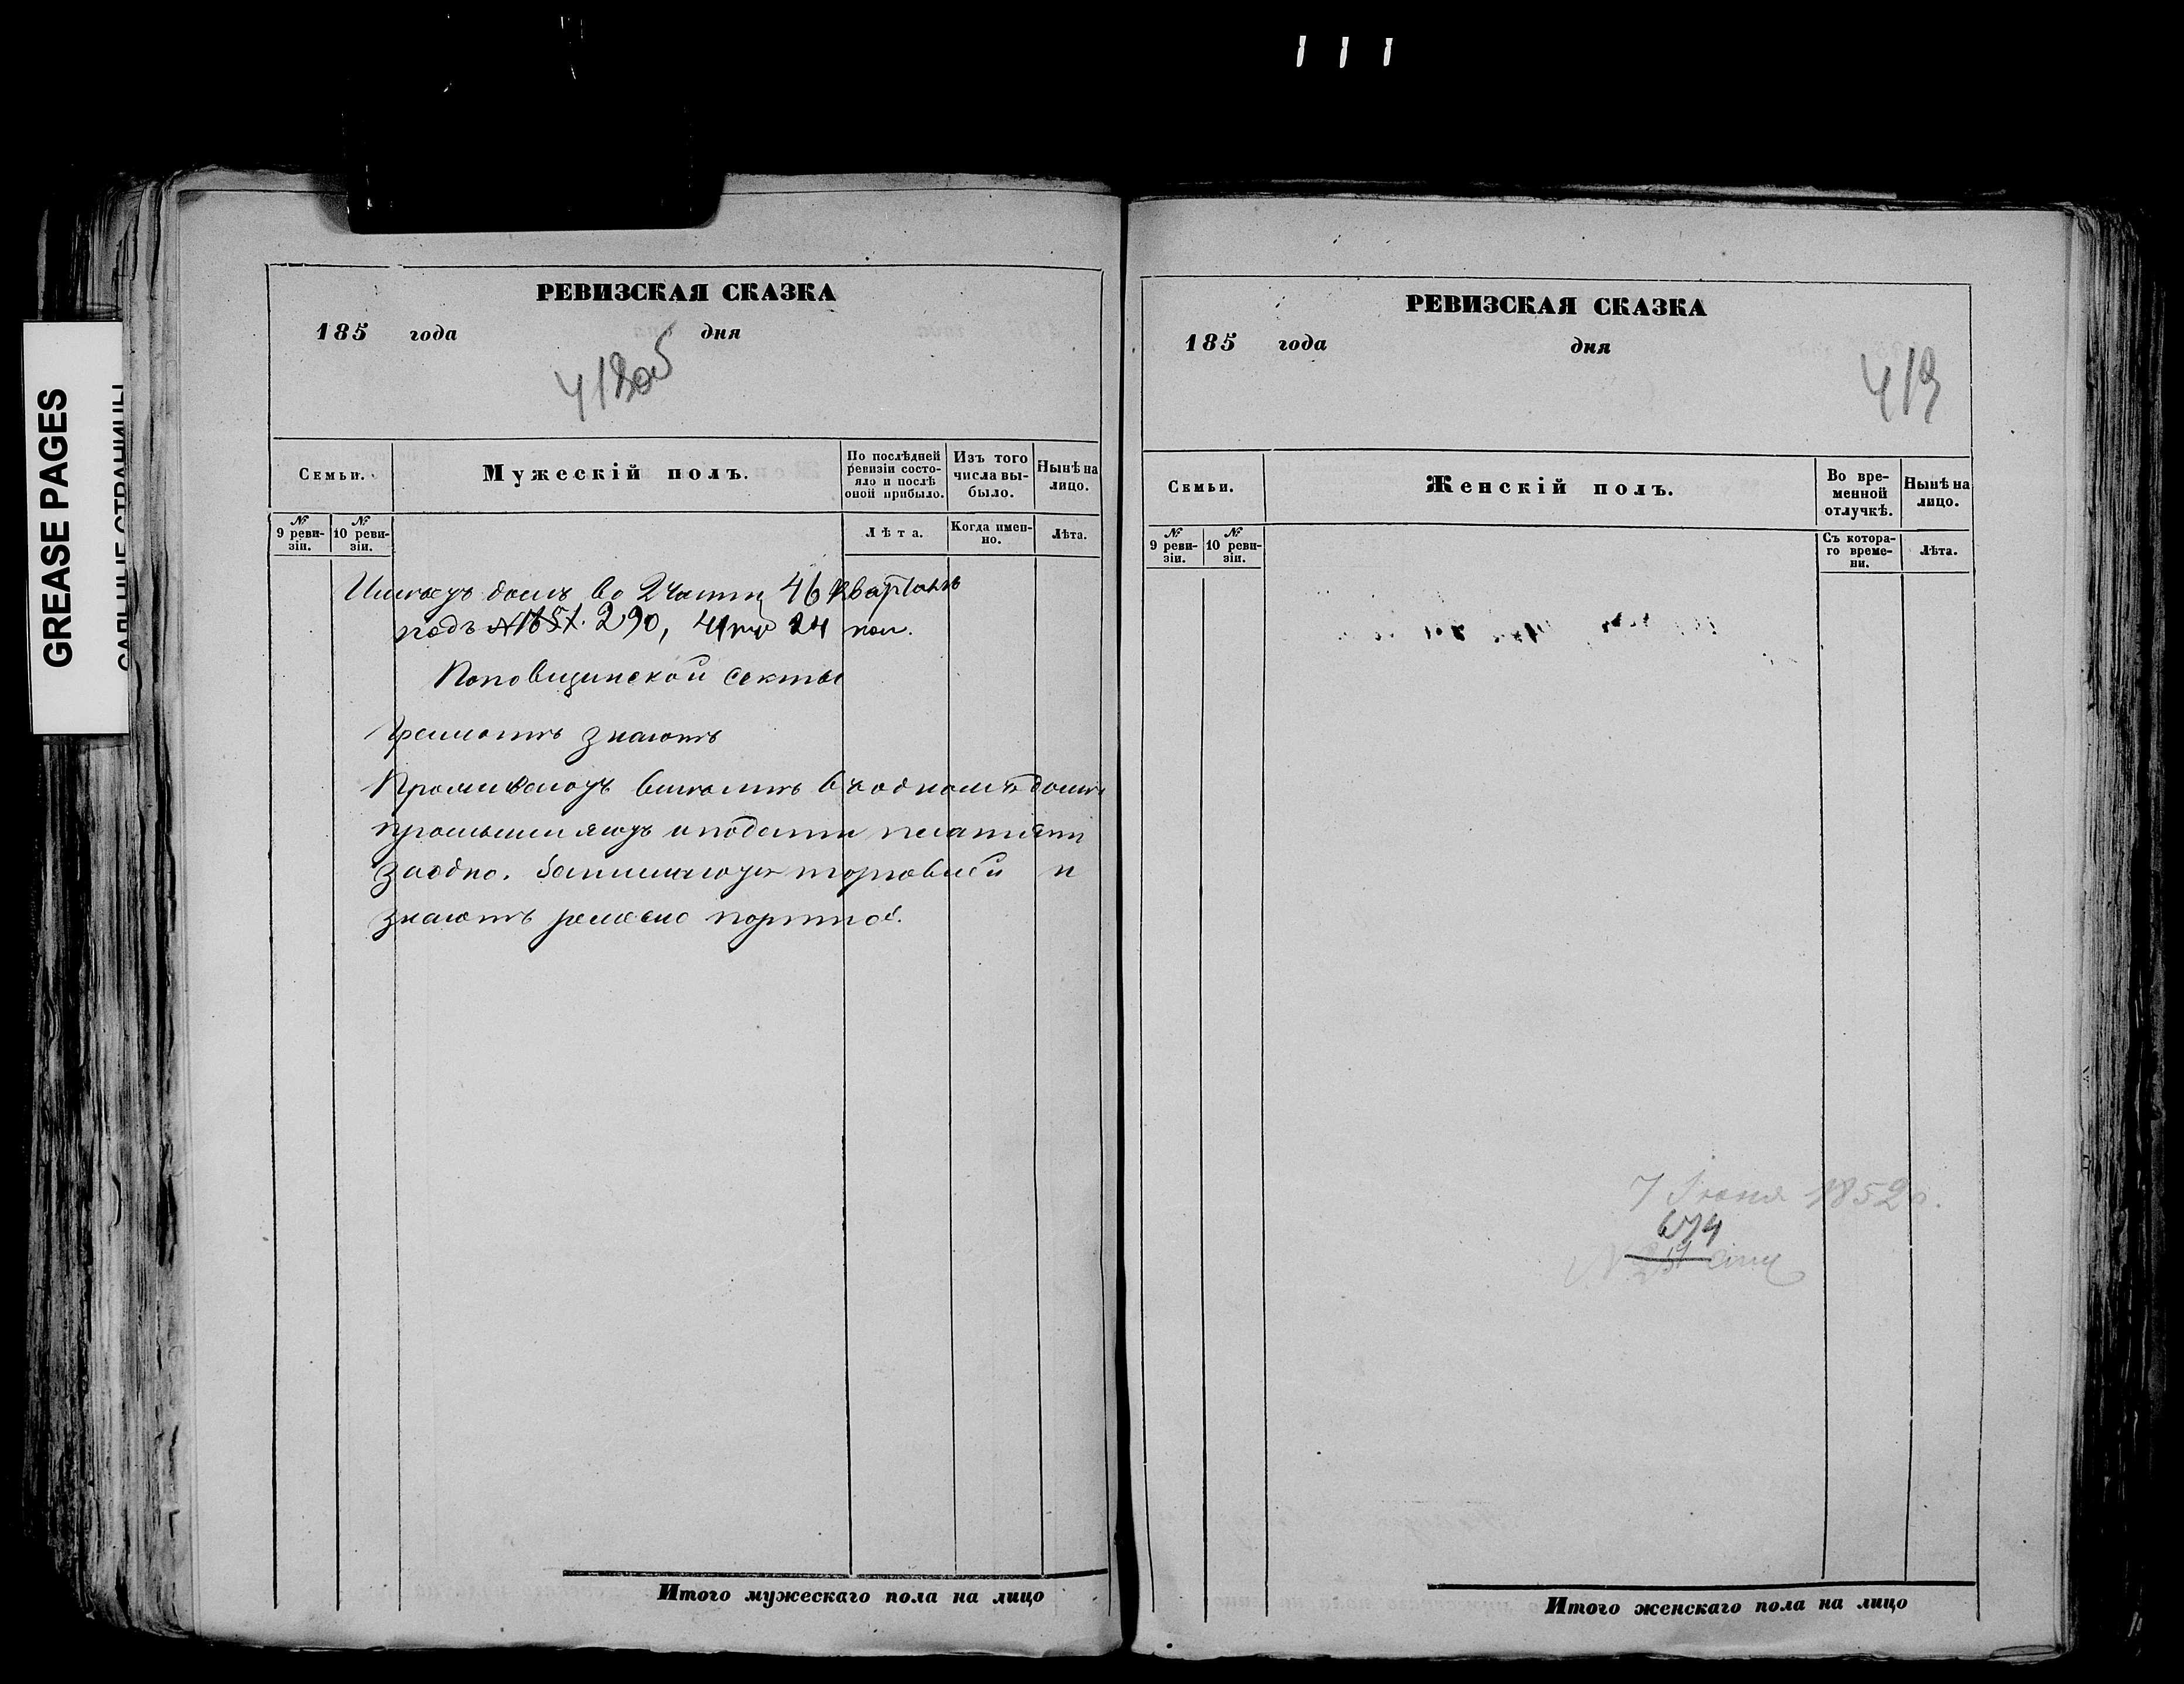 GREASE PAGES
САЛЬНЫЕ СТРАНИЦЫ
РЕВИЗСКАЯ СКАЗКА
185 года дня
418об
Семьи.
Мужескій полъ.
По послѣдней ревизіи состояло и послѣ оной прибыло.
Изъ того числа выбыло.
Нынѣ на лицо.
№ 9 ревизіи.
№ 10 ревизіи.
Лѣта.
Когда именно.
Лѣта.
Имеютъ домъ во 2 части 46 квартале
подъ № 290,
Поповщинской секты
Грамоте знаютъ
Проживаютъ вместе въ одномъ доме
промышляютъ и подати платятъ
заодно. Занимаются торговлей и
знаютъ ремесло портное.
Итого мужескаго пола на лицо
РЕВИЗСКАЯ СКАЗКА
185 года дня
419
Семьи.
Женскій полъ.
Во временной отлучкѣ.
Нынѣ на лицо.
№ 9 ревизіи.
№ 10 ревизіи.
Съ котораго времени.
Лѣта.
7 Июня 1852 г.
674
Итого женскаго пола на лицо